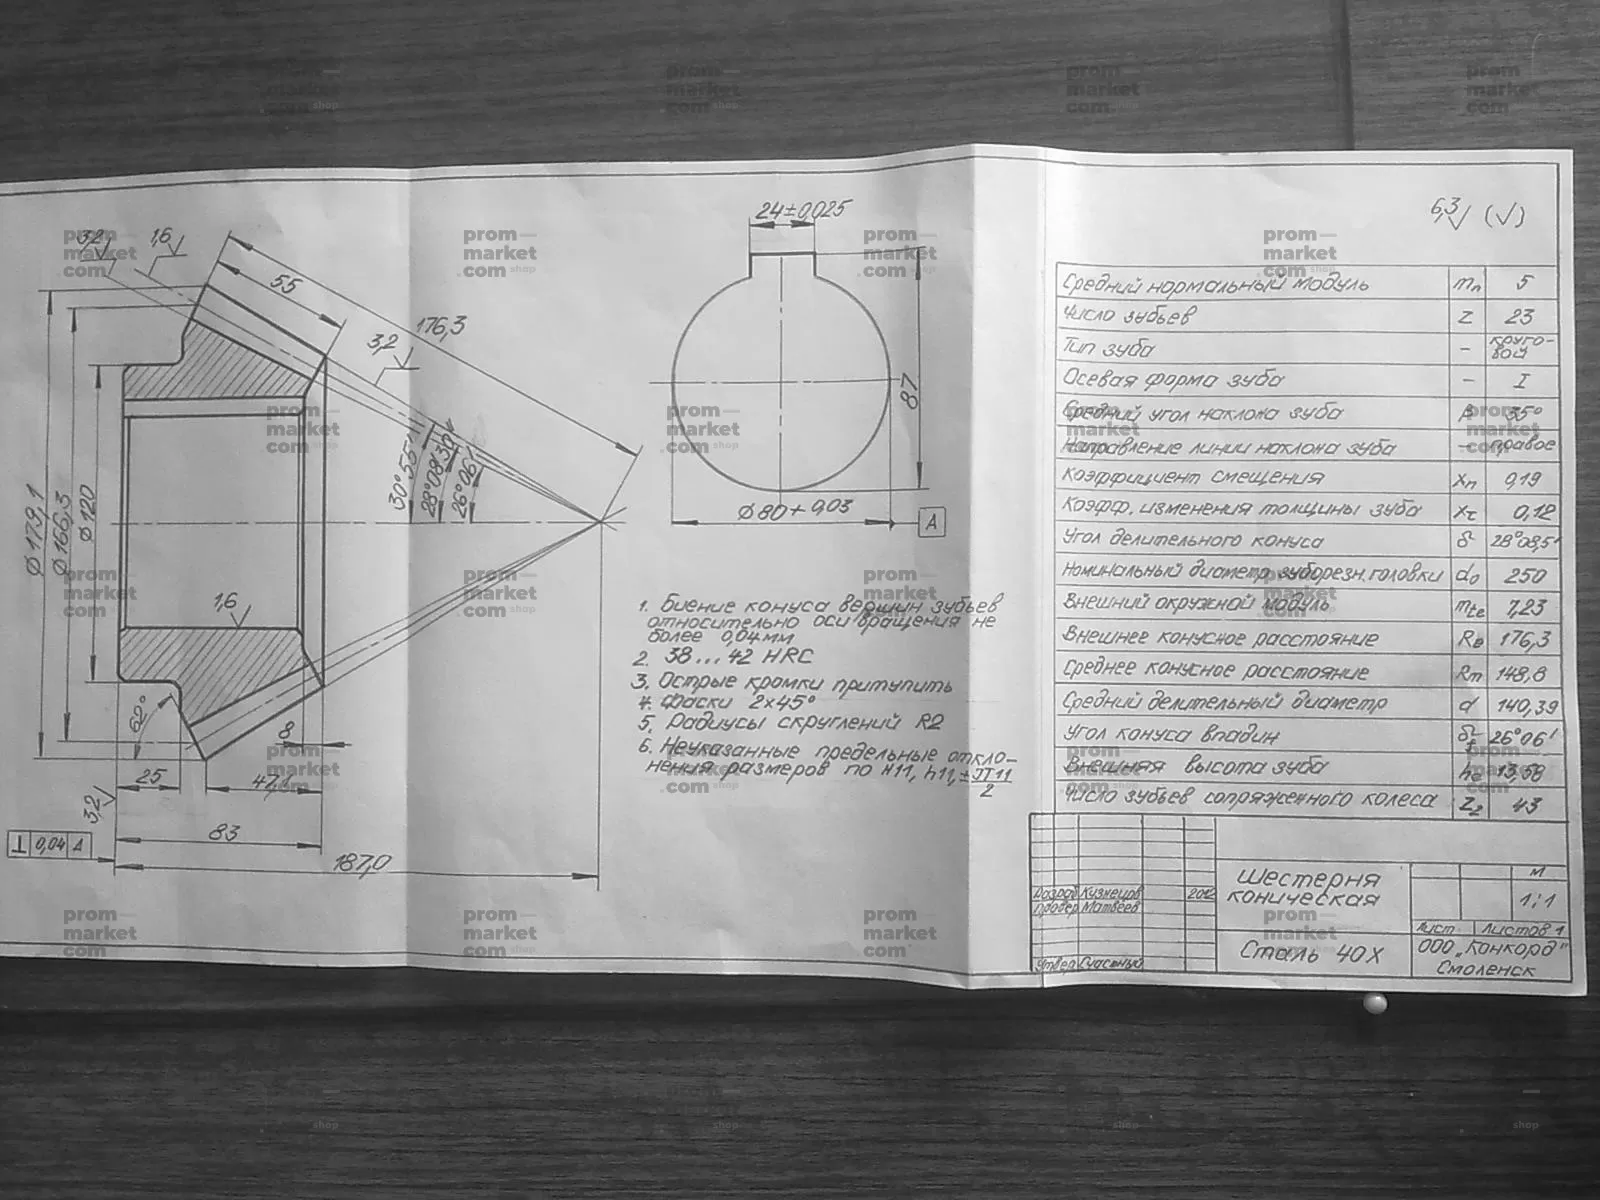 6,3 (√)
24±0,025
87
Ø80+0,03
А
3,2
1,6
55
176,3
3,2
30°55'
28°08'30"
26°06'
Ø179,1
Ø166,3
Ø120
1,6
62°
8
25
47,1
3,2
83
187,0
⊥ 0,04 А
1. Биение конуса вершин зубьев
относительно оси вращения не
более 0,04 мм
2. 38...42 HRC
3. Острые кромки притупить
4. Фаски 2x45°
5. Радиусы скруглений R2
6. Неуказанные предельные откло-
нения размеров по H11, h11, ±JT11/2
Средний нормальный модуль mn 5
Число зубьев z 23
Тип зуба – круго-
вой
Осевая форма зуба – I
Средний угол наклона зуба β 35°
Направление линии наклона зуба – правое
Коэффициент смещения xn 0,19
Коэфф. изменения толщины зуба xτ 0,12
Угол делительного конуса δ 28°08,5'
Номинальный диаметр зуборезн. головки d0 250
Внешний окружной модуль mte 7,23
Внешнее конусное расстояние Re 176,3
Среднее конусное расстояние Rm 148,8
Средний делительный диаметр d 140,39
Угол конуса впадин δf 26°06'
Внешняя высота зуба he 13,58
Число зубьев сопряженного колеса z2 43
Разраб Кузнецов 2012
Провер Матвеев
Утвер Счастный
Шестерня
коническая
Сталь 40Х
М
1:1
Лист Листов 1
ООО "Конкорд"
Смоленск
prom—
market
.com shop